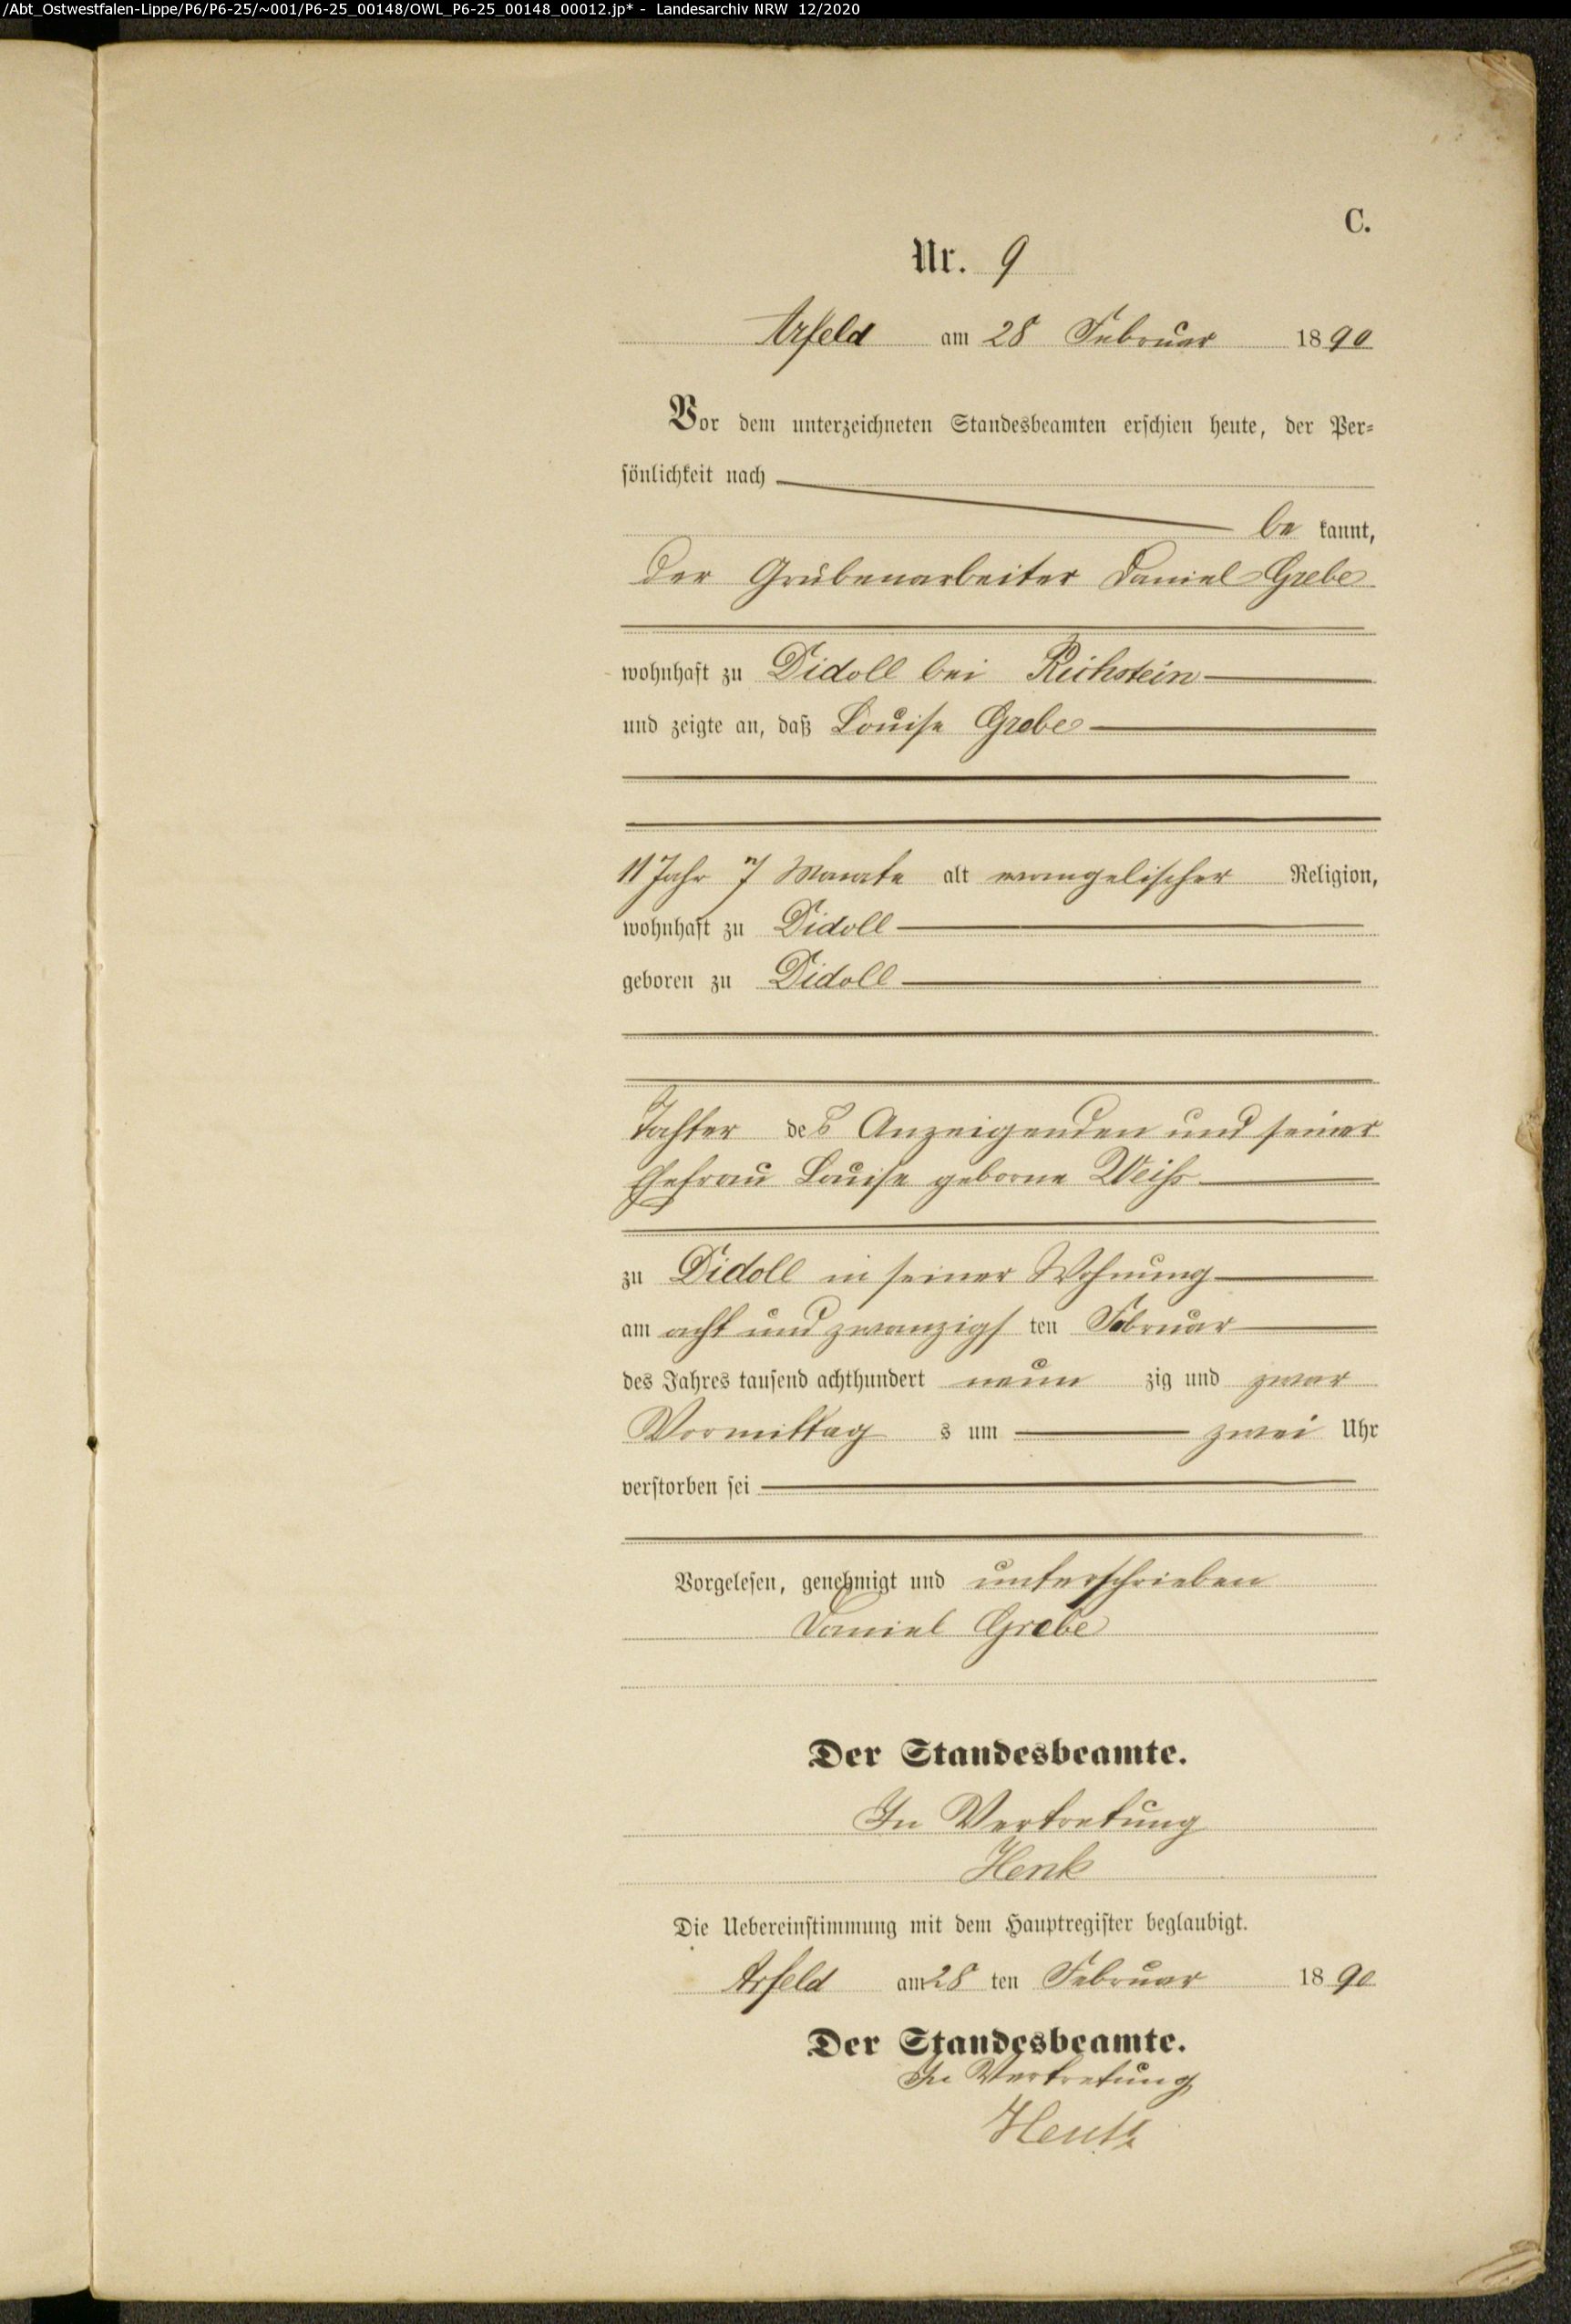 /Abt_Ostwestfalen-Lippe/P6/P6-25/~001/P6-25_00148/OWL_P6-25_00148_00012.jp* - Landesarchiv NRW 12/2020
C.
Nr. 9
Arfeld am 28 Februar 1890
Vor dem unterzeichneten Standesbeamten erschien heute, der Per-
sönlichkeit nach
be kannt,
der Grubenarbeiter Daniel Grebe
wohnhaft zu Didoll bei Richstein
und zeigte an, daß Louise Grebe
11 Jahr 7 Monate alt evangelischer Religion,
wohnhaft zu Didoll
geboren zu Didoll
Tochter des Anzeigenden und seiner
Ehefrau Louise geborne Weiss
zu Didoll in seiner Wohnung
am acht und zwanzigs ten Februar
des Jahres tausend achthundert neun zig und zwar
Vormittag s um zwei Uhr
verstorben sei
Vorgelesen, genehmigt und unterschrieben
Daniel Grebe
Der Standesbeamte.
In Vertretung
Henk
Die Uebereinstimmung mit dem Hauptregister beglaubigt.
Arfeld am 28 ten Februar 1890
Der Standesbeamte.
In Vertretung